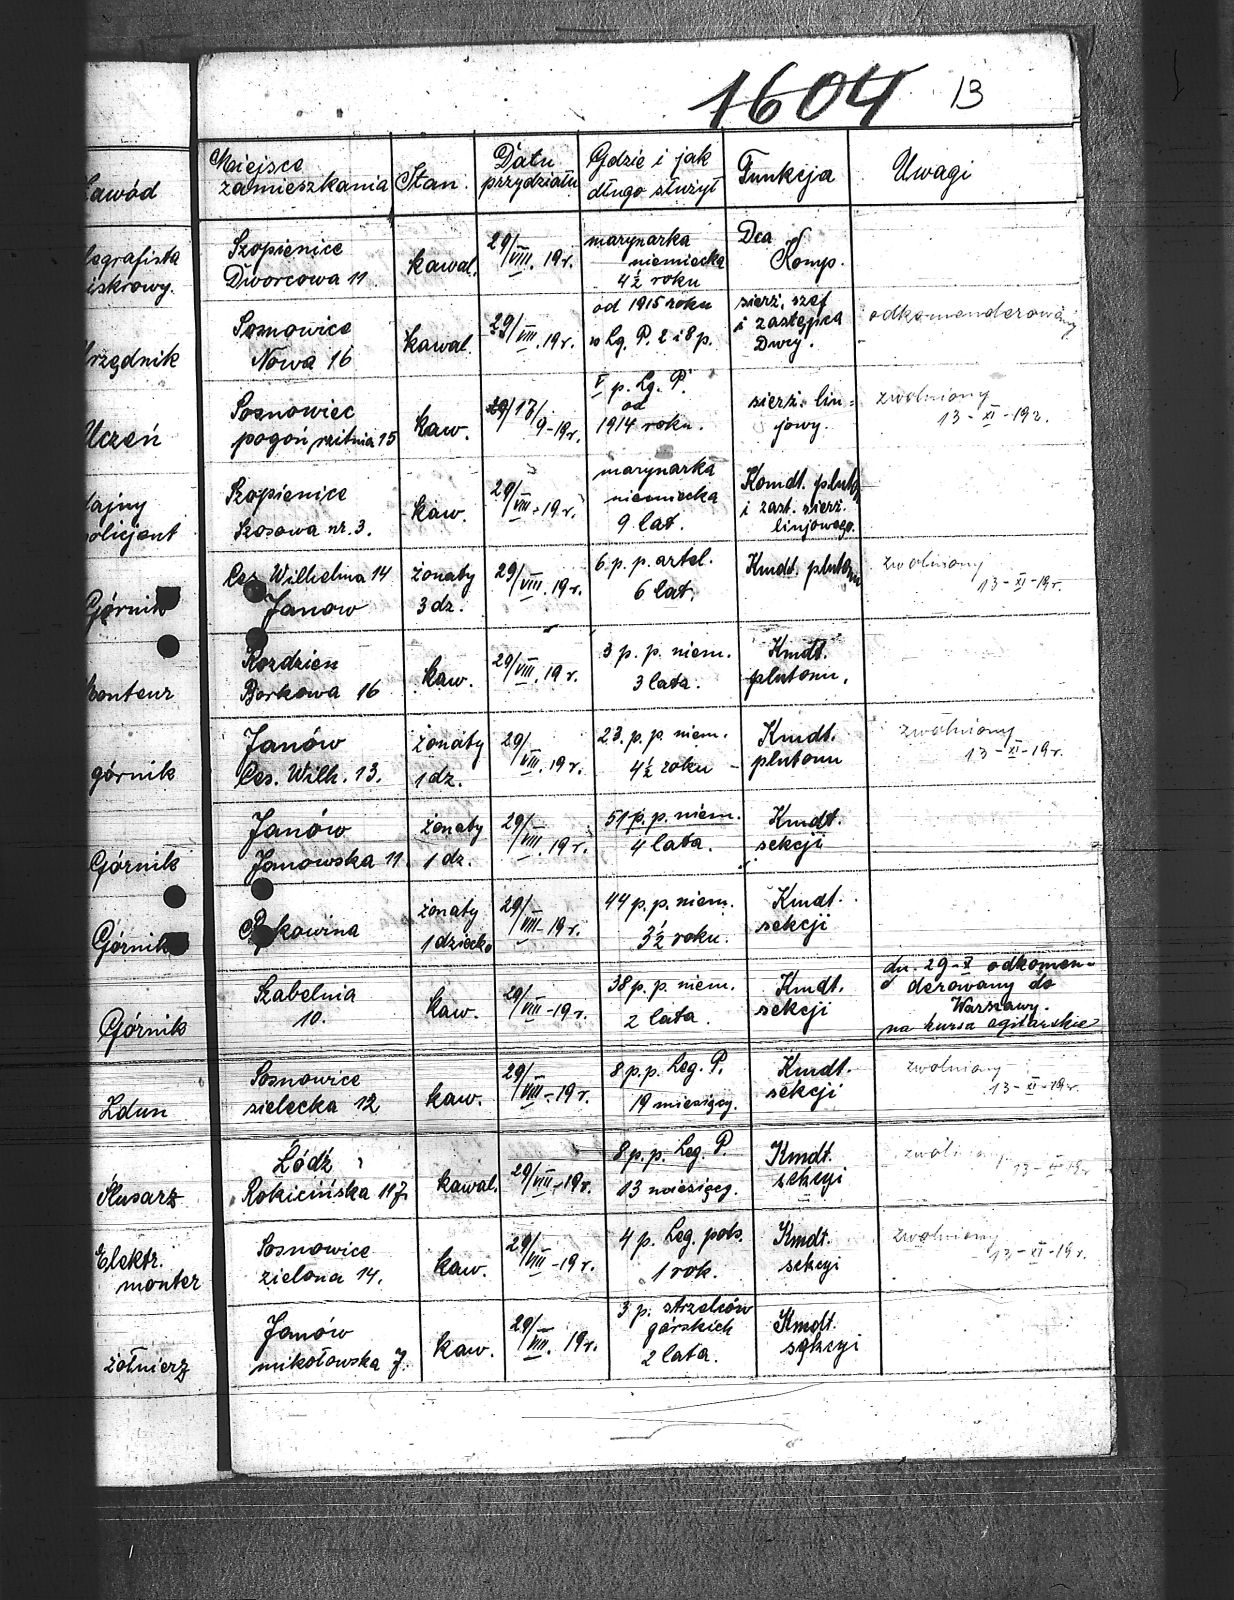 1604 13
Zawód
Miejsce
zamieszkania
Stan.
Data
przydziału
Gdzie i jak
długo służył
Funkcja
Uwagi
legrafista
iskrowy.
Szopienice
Dworcowa 11
kawal.
29/VIII. 19r.
marynarka
niemiecka
4½ roku
Dca
Komp.
Urzędnik
Sosnowice
Nowa 16
kawal.
29/VIII. 19r.
od 1915 roku
w Lg. P. 2 i 8 p.
sierż. szef
i zastępca
Dwcy.
odkomenderowany
Uczeń
Sosnowiec
pogoń 15
kaw.
17/9-19r.
V p. Lg. P.
od
1914 roku.
sierż. lin-
jowy.
zwolniony
13-XI-19r.
tajny
policjant
Szopienice
Szosowa nr. 3.
kaw.
29/VIII-19r.
marynarka
niemiecka
9 lat.
Komdt. plut.
i zast. sierż.
linjowego.
Górnik
Ces. Wilhelma 14
Janow
żonaty
3 dz.
29/VIII. 19r.
6. p. p. artel.
6 lat.
Kmdt. plutonu
zwolniony
13-XI-19r.
Monteur
Rozdzien
Borkowa 16
kaw.
29/VIII. 19r.
3 p. p. niem.
3 lata.
Kmdt.
plutonu.
górnik
Janów
Ces. Wilh. 13.
żonaty
1 dz.
29/VIII. 19r.
23. p. p. niem.
4½ roku
Kmdt.
plutonu
zwolniony
13-XI-19r.
Górnik
Janów
Janowska 11.
żonaty
1 dz.
29/VIII. 19r.
51 p. p. niem.
4 lata.
Kmdt.
sekcji
Górnik
żonaty
1 dziecko
29/VIII-19r.
44 p. p. niem.
3½ roku.
Kmdt.
sekcji
Górnik
Szabelnia
10.
kaw.
29/VIII-19r.
38 p. p. niem.
2 lata.
Kmdt.
sekcji
dn. 29-X odkomen-
derowany do
Warszawy.
na kursa agitarskie
Zdun
Sosnowice
sielecka 12
kaw.
29/VIII-19r.
8 p. p. Leg. P.
19 miesięcy.
Kmdt.
sekcji
zwolniony
13-XI-19r.
Ślusarz
Łódź
Rokicińska 117.
kawal.
29/VIII-19r.
8 p. p. Leg. P.
13 miesięcy.
Kmdt.
sekcyi
zwolniony
13-XI-19r
Elektr.
monter
Sosnowice
zielona 14.
kaw.
29/VIII-19r.
4 p. Leg. pols.
1 rok.
Kmdt.
sekcyi
zwolniony
13-XI-19r.
żołnierz
Janów
mikołowska 7.
kaw.
29/VIII. 19r.
3 p. strzelców
górskich
2 lata.
Kmdt.
sekcyi